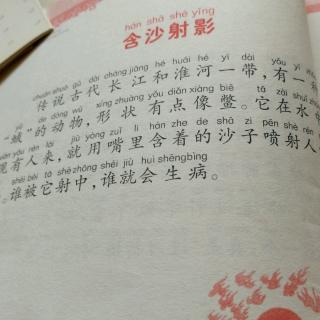 hán shā shè yǐng
含沙射影
chuán shuō gǔ dài cháng jiāng hé huái hé yí dài yǒu yì
传说古代长江和淮河一带,有一种
wù de dòng wù xíng zhuàng yǒu diǎn xiàng biē tā zài shuǐ
“蜮”的动物,形状有点像鳖。它在水中
yǒu rén lái jiù yòng zuǐ lǐ hán zhe de shā zi pēn shè rén
现有人来,就用嘴里含着的沙子喷射人
shéi bèi tā shè zhòng shéi jiù huì shēng bìng
。谁被它射中,谁就会生病。